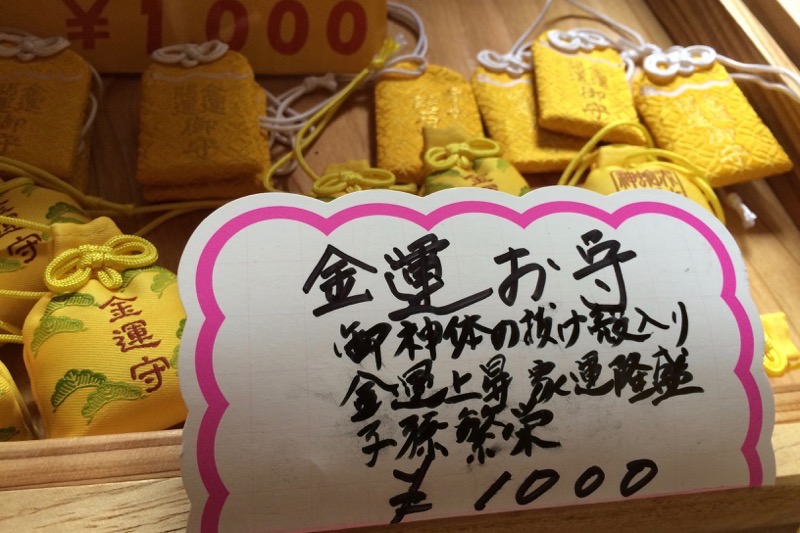 ¥1000
金運御守
金運御守
金運御守
金運守
金運お守
御神体の抜け殻入り
金運上昇 家運隆盛
子孫繁栄
¥1000